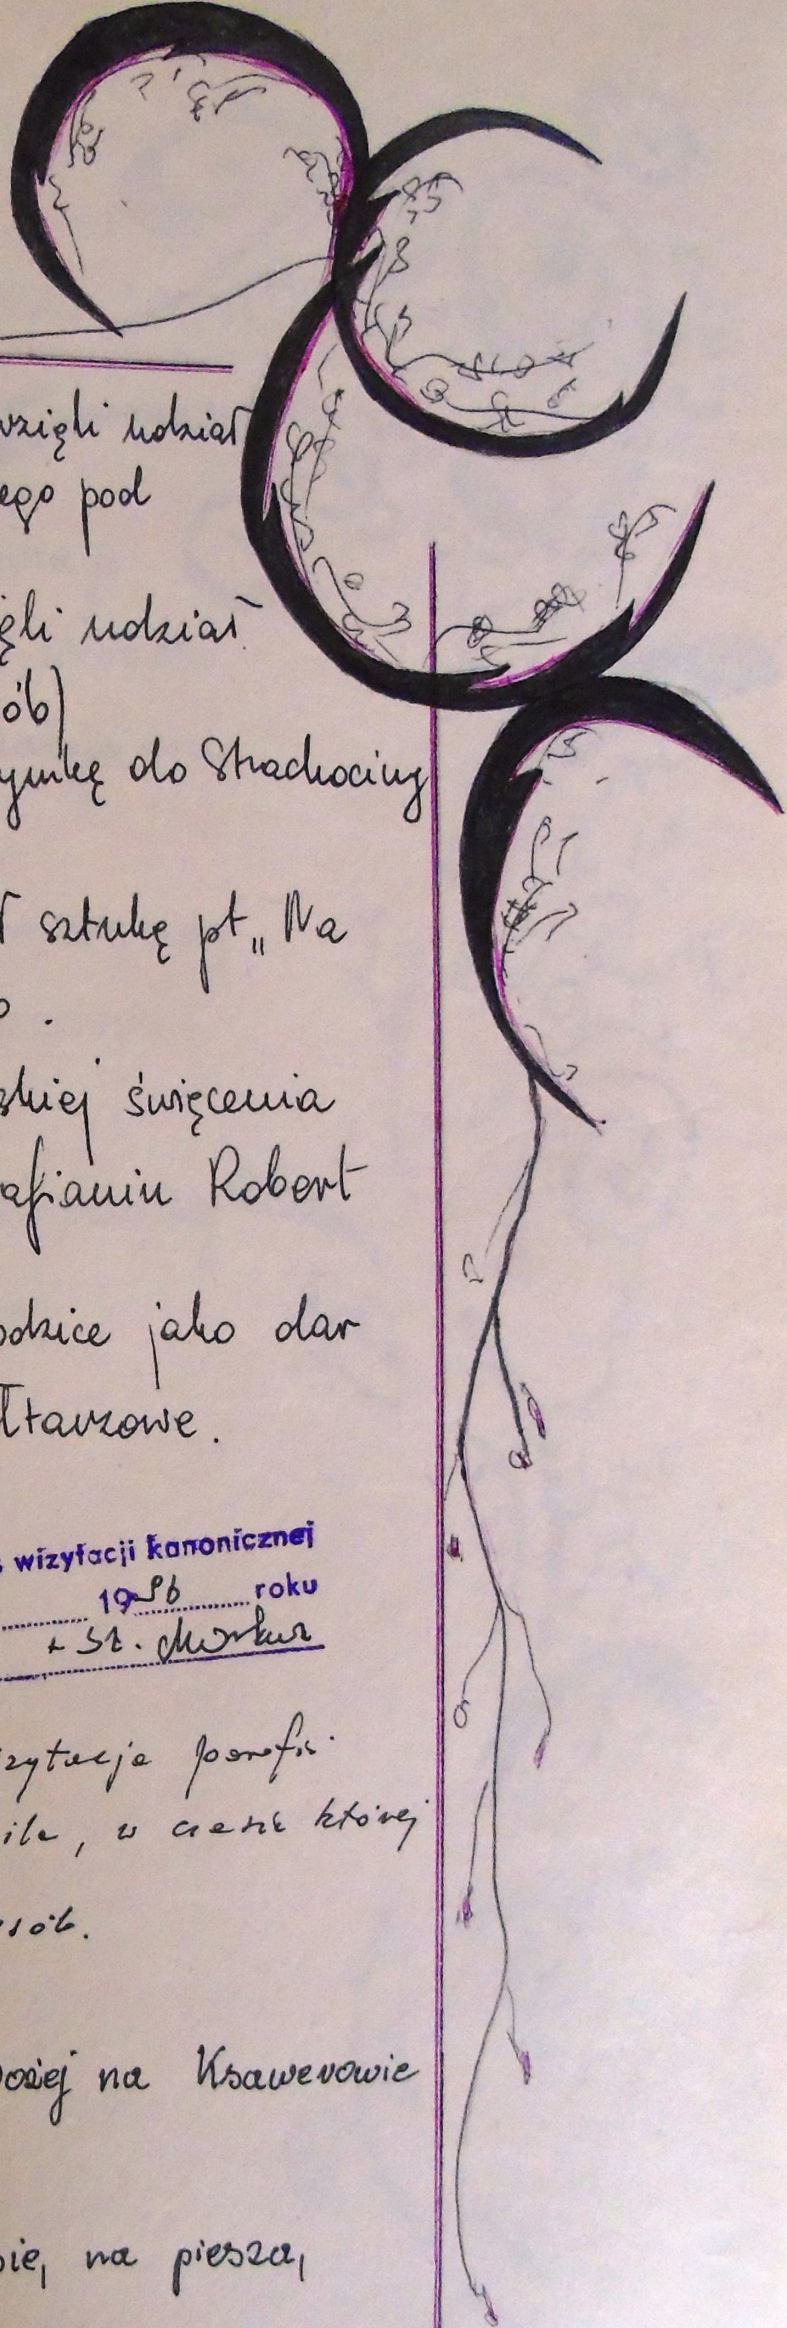 wzięli udział
ego pod
ęli udział
ób)
ymkę do Strachociny
ł sztukę pt „Na
o.
skiej święcenia
afianin Robert
odzice jako dar
łtarzowe.
s wizytacji kanonicznej
1996 roku
+ St.
zytacja parafii
ila, w czasie której
sób.
Bożej na Ksawerowie
bie, na pieszą,